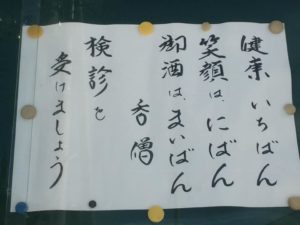 健康 いちばん
笑顔は、にばん
御酒は、まいばん
呑僧
検診を
受けましょう